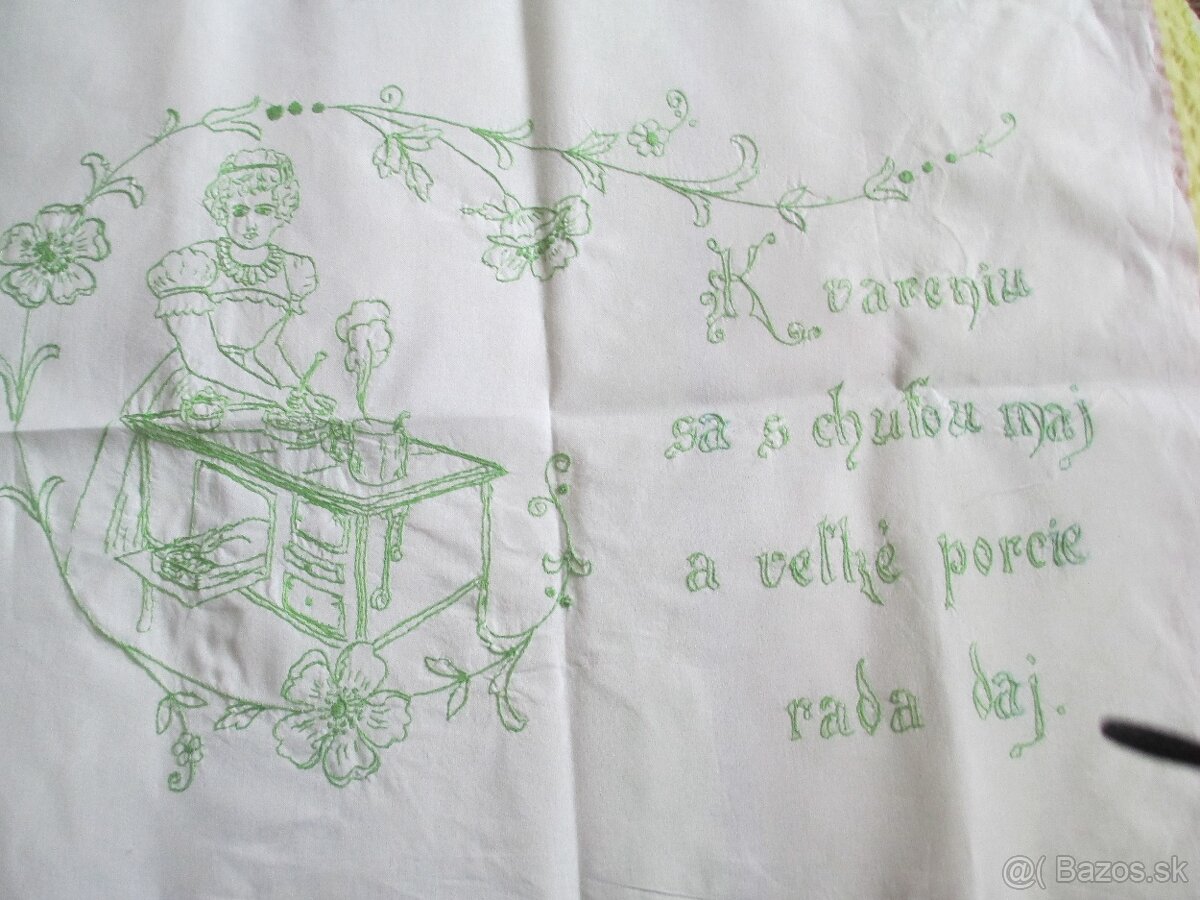 K vareniu
sa s chuťou maj
a veľké porcie
rada daj.
@( Bazos.sk